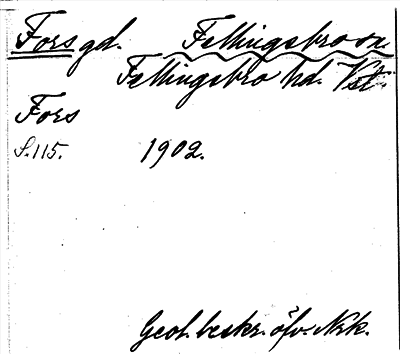 Fors gd. Fellingsbro sn.
Fellingsbro hd. Vst.
Fors
S. 115. 1902.
Geol. beskr. öfv. Nrk.